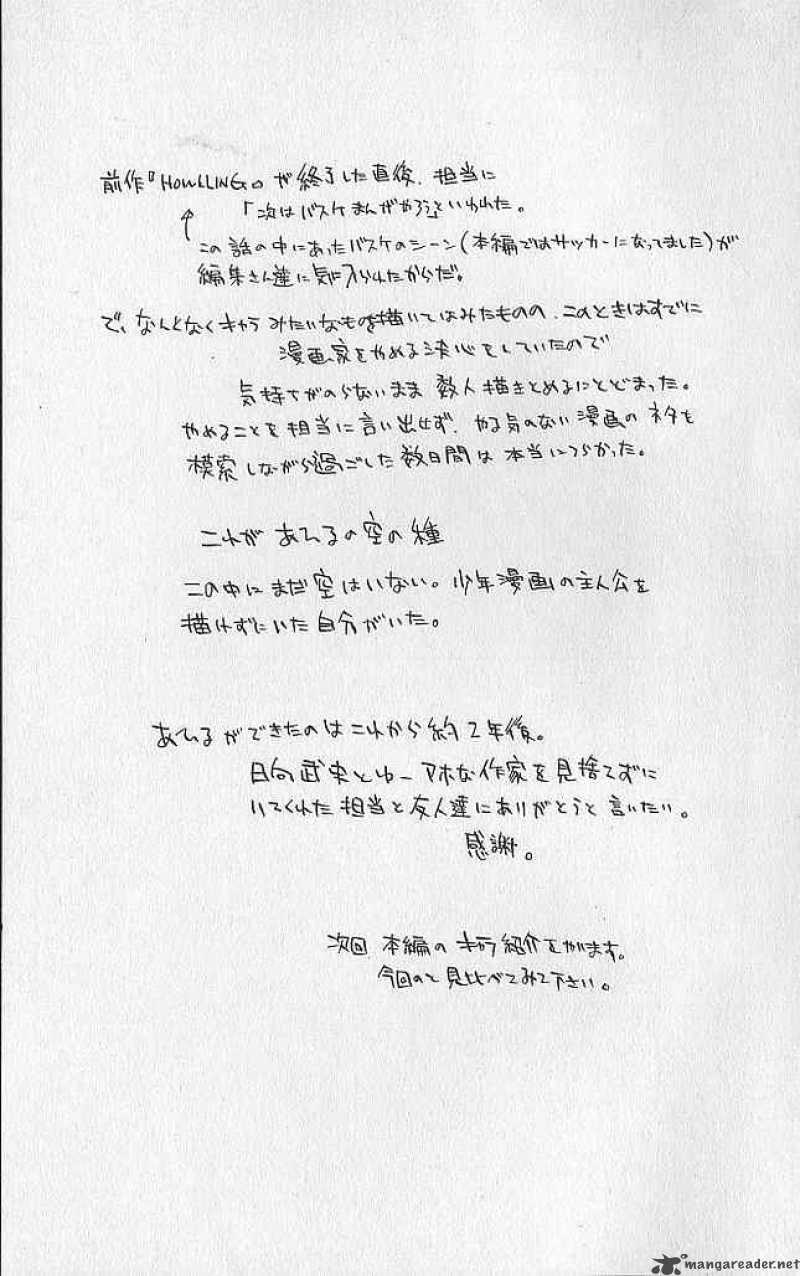 前作『HOWLLING』が終了した直後、担当に
「次はバスケまんがやろう」といわれた。
↑
この話の中にあったバスケのシーン(本編ではサッカーになってました)が
編集さん達に気に入られたからだ。
で、なんとなくキャラみたいなものを描いてはみたものの、このときはすでに
漫画家をやめる決心をしていたので
気持ちがのらないまま数人描きとめるにとどまった。
やめることを担当に言い出せず、やる気のない漫画のネタを
模索しながら過ごした数日間は本当につらかった。
これが あひるの空の種
この中にまだ空はいない。少年漫画の主人公を
描けずにいた自分がいた。
あひるができたのはこれから約2年後。
日向武史とゆーアホな作家を見捨てずに
いてくれた担当と友人達にありがとうと言いたい。
感謝。
次回 本編のキャラ紹介をやります。
今回のと見比べてみて下さい。
mangareader.net